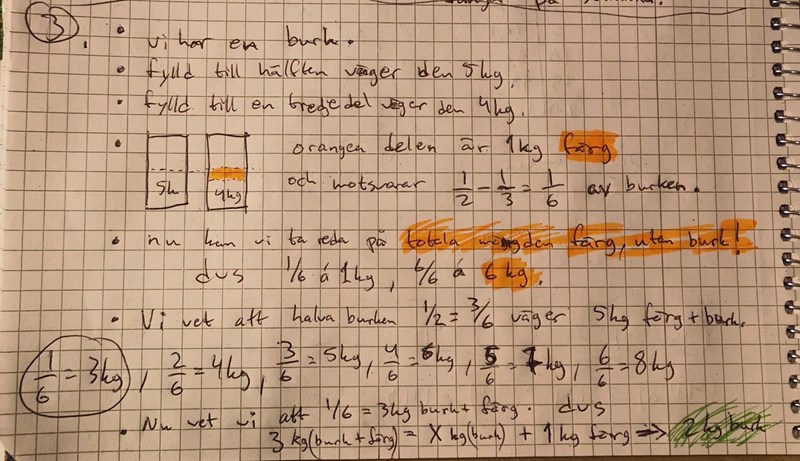 3.
• vi har en burk.
• fylld till hälften väger den 5kg.
• fylld till en tredjedel väger den 4kg.
• orangea delen är 1kg färg
5k 4kg och motsvarar 1/2 - 1/3 = 1/6 av burken.
• nu kan vi ta reda på totala mängden färg, utan burk!
dvs 1/6 á 1kg, 6/6 á 6kg.
• Vi vet att halva burken 1/2 = 3/6 väger 5kg färg + burk.
1/6 = 3kg, 2/6 = 4kg, 3/6 = 5kg, 4/6 = 6kg, 5/6 = 7kg, 6/6 = 8kg
• Nu vet vi att 1/6 = 3kg burk + färg. dvs
3 kg (burk + färg) = X kg (burk) + 1kg färg => 2kg burk